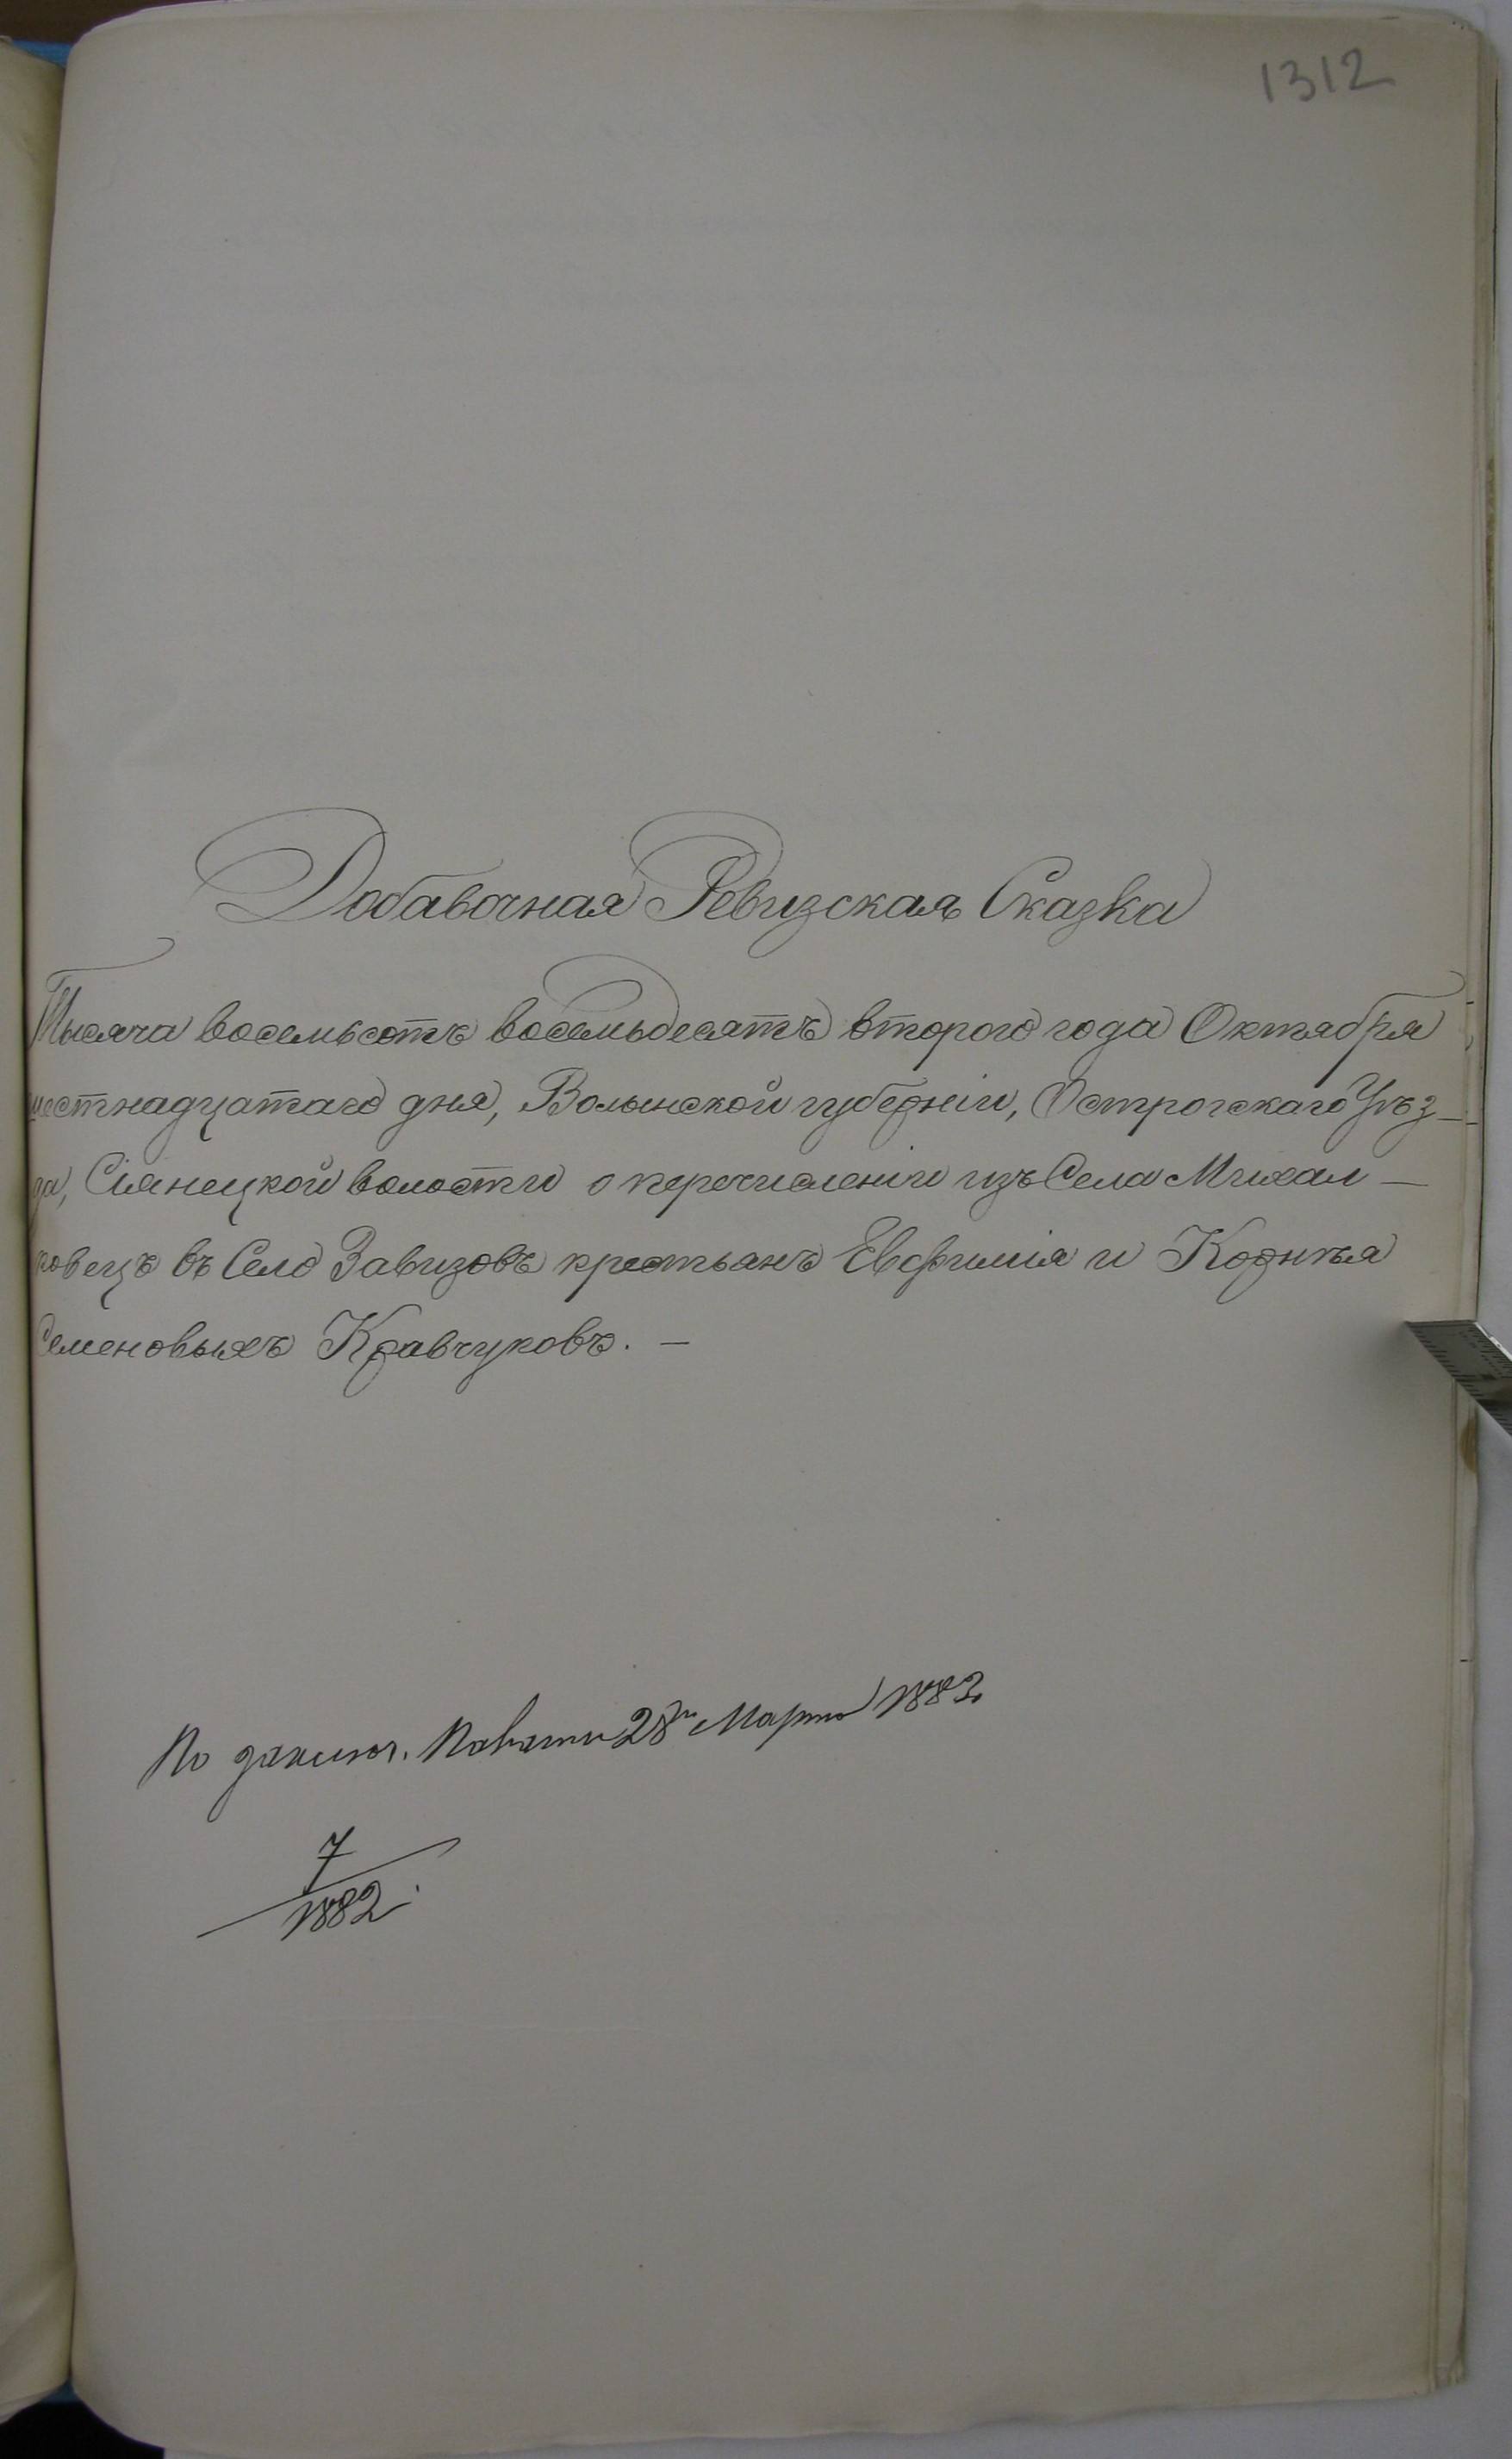 1312
Добавочная Ревизская Сказка
Тысяча восемьсотъ восемьдесятъ второго года Октября
шестнадцатаго дня, Волынской губерніи, Острогскаго Уѣз-
да, Сіянецкой волости о перечисленіи изъ Села Михал-
ковецъ въ Село Завизовъ крестьянъ Евфимія и Корнѣя
Семеновыхъ Кравчуковъ. —
По заключ. Палаты 28го Марта 1883
7
1882